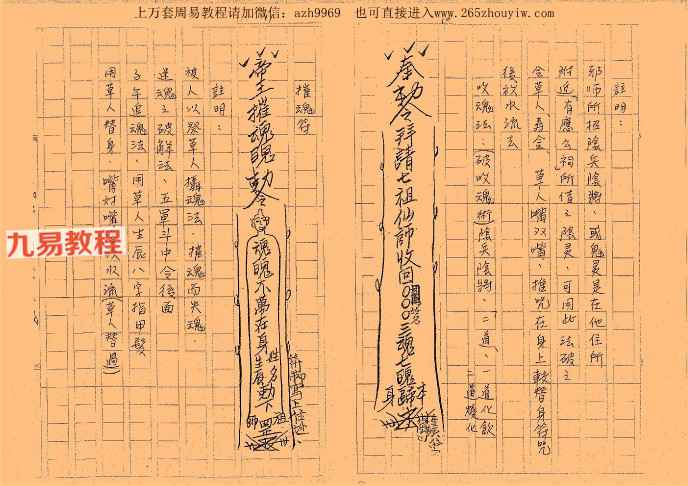 上万套周易教程请加微信：azh9969 也可直接进入www.265zhouyiw.com
註明：
邪師所招陰兵陰將，或鬼灵是在他住所
附近有應公祠所值之陰灵，可用此法破之
金草人壽金，草人嘴双嘴，推咒在身上
替身符咒
後放水流去
收魂法：（破收魂術）陰兵陰將，二道，一道化飲
奉勅令拜請七祖仙師收回〇〇〇三魂七魄歸
本身
催魂符
帝王催魂魄勅令
魂魄不離在身
姓名
生辰
勅下
祖師
註明：
被人以發草人攝魂法，催魂而失魂，
追魂之破解法，五軍斗中令後面
名午追魂法，用草人生辰八字指甲髮
用草人替身
草人替過
九易教程